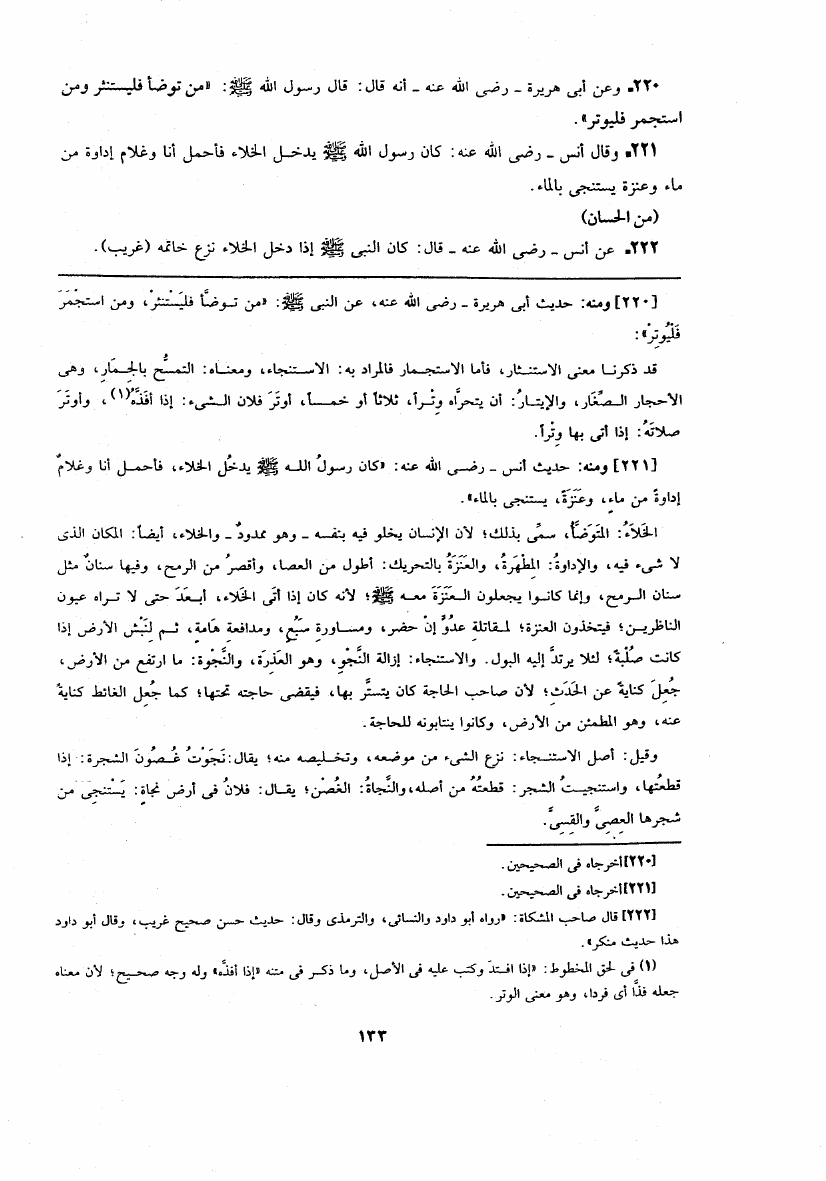 ٢٢٠ـ وعن أبى هريرة ـ رضى الله عنه ـ أنه قال: قال رسول الله ﷺ: «من توضأ فليستنثر ومن
استجمر فليوتر».
٢٢١ـ وقال أنس ـ رضى الله عنه: كان رسول الله ﷺ يدخل الخلاء فأحمل أنا وغلام إداوة من
ماء وعنزة يستنجى بالماء.
(من الحسان)
٢٢٢ـ عن أنس ـ رضى الله عنه ـ قال: كان النبى ﷺ إذا دخل الخلاء نزع خاتمه (غريب).
[٢٢٠] ومنه: حديث أبى هريرة ـ رضى الله عنه، عن النبى ﷺ: «من تـوضَّأ فليَسْتَنْثرْ، ومن استجْمَرَ
فَلْيُوتِرْ»:
قد ذكرنا معنى الاستنثار، فأما الاستجمار فالمراد به: الاستنجاء، ومعناه: التمسُّح بالجِمَارِ، وهى
الأحجار الصِّغَار، والإيتارُ: أن يتحراَّه وتْراً، ثلاثاً أو خمساً، أوتَرَ فلان الشىء: إذا أفَذَّهُ(١)، وأوتَرَ
صلاتَهُ: إذا أتى بها وتْراً.
[٢٢١] ومنه: حديث أنس ـ رضى الله عنه: «كان رسولُ الله ﷺ يدخُل الخلاء، فأحمل أنا وغلامٌ
إداوةً من ماءٍ، وعَنَزَةً، يستنجى بالماء».
الخَلاَءُ: المُتَوَضَّأ، سمِّى بذلك؛ لأن الإنسان يخلو فيه بنفسه ـ وهو ممدودٌ ـ والخلاء، أيضاً: المكان الذى
لا شىء فيه، والإداوةُ: المِطْهَرةُ، والعَنَزَةُ بالتحريك: أطول من العصا، وأقصرُ من الرمح، وفيها سنانٌ مثل
سنان الرمح، وإنما كانوا يجعلون العَنَزَةَ معه ﷺ؛ لأنه كان إذا أتَى الخلاء، أبعَدَ حتى لا تراه عيون
الناظرين؛ فيتخذون العنزة؛ لمقاتلة عدُوٍّ إنْ حضر، ومساورة سَبُعٍ، ومدافعة هَامةٍ، ثم لِنَبْش الأرض إذا
كانت صُلْبةً؛ لئلا يرتدَّ إليه البول. والاستنجاء: إزالة النَّجْو، وهو العَذِرَة، والنَّجْوة: ما ارتفع من الأرض،
جُعِلَ كنايةً عن الحَدَثِ؛ لأن صاحب الحاجة كان يتستَّر بها، فيقضى حاجته تحتها؛ كما جُعل الغائط كنايةً
عنه، وهو المطمئن من الأرض، وكانوا ينتابونه للحاجة.
وقيل: أصل الاستنجاء: نزع الشىء من موضعه، وتخليصه منه؛ يقال: نَجَوْتُ غُصُونَ الشجرة: إذا
قطعتُها، واستنجيتُ الشجر: قطعتُهُ من أصله، والنَّجاةُ: الغُصْن؛ يقال: فلانٌ فى أرض نجاةٍ: يَسْتنجِى من
شجرها العِصِىَّ والقِسِىَّ.
[٢٢٠] أخرجاه فى الصحيحين.
[٢٢١] أخرجاه فى الصحيحين.
[٢٢٢] قال صاحب المشكاة: «رواه أبو داود والنسائى، والترمذى وقال: حديث حسن صحيح غريب، وقال أبو داود
هذا حديث منكر».
(١) فى لحق المخطوط: «إذا افتدَ وكتب عليه فى الأصل، وما ذكر فى متنه «إذا أفذَّه» وله وجه صحيح؛ لأن معناه
جعله فذَّا أى فردا، وهو معنى الوتر.
١٣٣